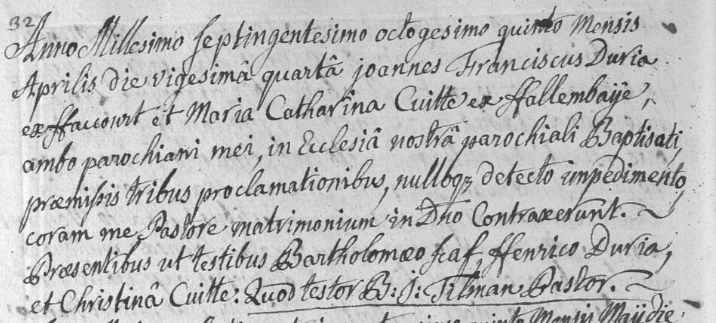 32
Anno Millesimo septingentesimo octogesimo quinto Mensis
Aprilis die vigesimâ quartâ joannes Franciscus Duria
ex Haccourt et Maria Catharina Cuitte ex Hallembaÿe,
ambo parochiani mei, in Ecclesiâ nostrâ parochiali Baptisati,
præmissis tribus proclamationibus, nulloqz detecto impedimento,
coram me Pastore matrimonium in Dno Contraxerunt.
Præsentibus ut testibus Bartholomæo Henrico Duria,
et Christinâ Cuitte. Quod testor B: J: Tilman Pastor.
quinto Mensis Maÿ die